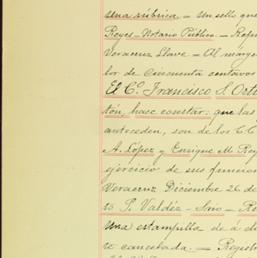 una rúbrica — Un sello que
Reyes - Notario Público. — Repu
Veracruz Llave — Al marge
lor de cincuenta centavos
El C.º Francisco S. Orte
tón, hace constar: que las
anteceden, son de los C.C
A. López y Enrique M. Rey
ejercicio de sus funcion
Veracruz Diciembre 26 de
to P. Valdéz — Srio — Re
Una estampilla de á di
te cancelada. — Registr